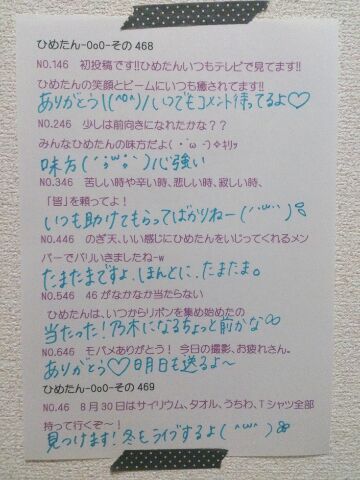 ひめたん-OoO-その 468
NO.146　初投稿です!!ひめたんいつもテレビで見てます!!
ひめたんの笑顔とビームにいつも癒されてます!!
ありがとう!(^o^)/いつでもコメント待ってるよ♡
NO.246　少しは前向きになれたかな??
みんなひめたんの味方だよ(｀･ω･´)✧ｷﾘｯ
味方(´;ω;`)心強い
NO.346　苦しい時や辛い時、悲しい時、寂しい時、
「皆」を頼ってよ!
いつも助けてもらってばかりねー(´･ω･`)
NO.446　のぎ天、いい感じにひめたんをいじってくれるメン
バーでバリいきましたね-w
たまたまですよ.ほんとに.たまたま。
NO.546　46がなかなか当たらない
ひめたんは、いつからリボンを集め始めたの
当たった!乃木になるちょっと前かな∞
NO.646　モバメありがとう!　今日の撮影、お疲れさん。
ありがとう♡明日も送るよ〜
ひめたん-OoO-その 469
NO.46　8月30日はサイリウム、タオル、うちわ、Tシャツ全部
持って行くぞ〜!
見つけます!冬もライブするよ(^ω^)